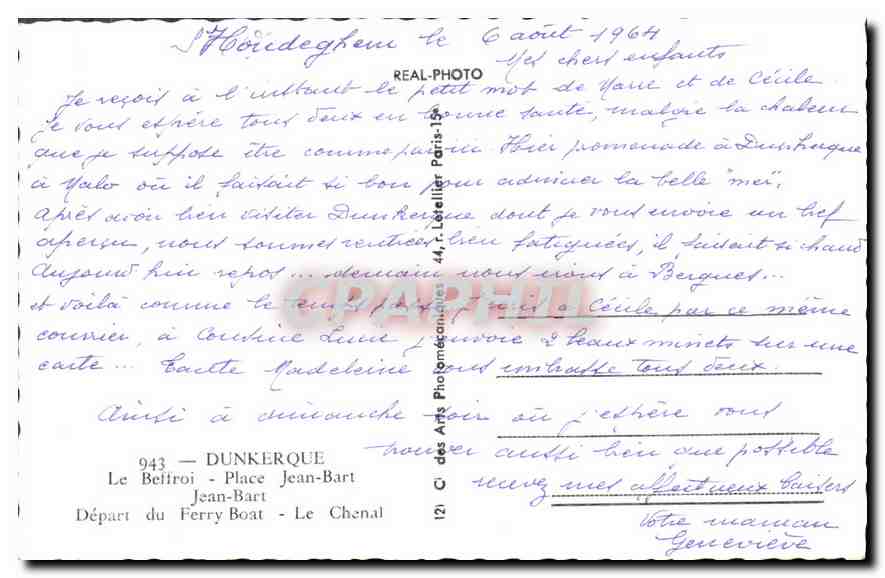 Hondeghem le 6 août 1964
Mes chers enfants
REAL-PHOTO
Je reçois à l'instant le petit mot de Marie et de Cécile
Je vous espère tous deux en bonne santé, malgré la chaleur
que je suppose être comme par ici. Hier promenade à Dunkerque
à Malo où il faisait si bon pour admirer la belle "mer".
Après avoir bien visiter Dunkerque dont je vous envoie un bref
aperçu, nous sommes rentrées bien fatiguées, il faisait si chaud
Aujourd'hui repos... demain nous irons à Bergues...
et voilà comme le temps passe, j'écris a Cécile par ce même
courrier, à Cousine Lucie j'envoie 2 beaux minets sur une
carte... Tante Madeleine vous embrasse tous deux.
Ainsi à dimanche soir où j'espère vous
trouver aussi bien que possible
recevez mes affectueux baisers
Votre maman
Geneviève
943 — DUNKERQUE
Le Beffroi - Place Jean-Bart
Jean-Bart
Départ du Ferry Boat - Le Chenal
des Arts Photomécaniques 44, r. Letellier Paris-15e
CPAPHIL